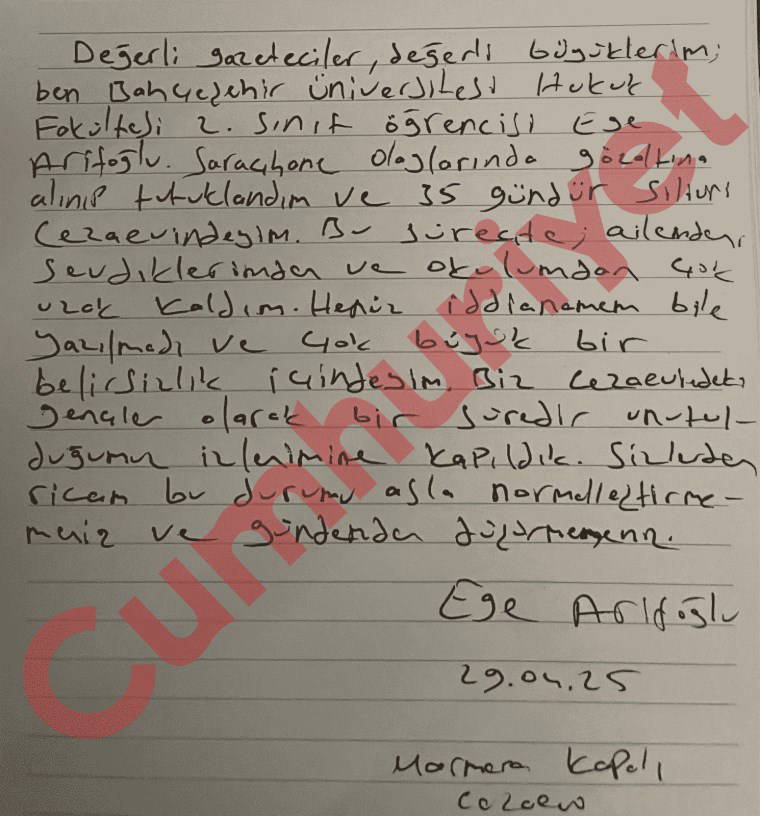 Değerli gazeteciler, değerli büyüklerim;
ben Bahçeşehir üniversitesi Hukuk
Fakültesi 2. sınıf öğrencisi Ege
Arifoğlu. Saraçhane Olaylarında gözaltına
alınıp tutuklandım ve 35 gündür Silivri
Cezaevindeyim. Bu süreçte; ailemden,
sevdiklerimden ve okulumdan çok
uzak kaldım. Henüz iddianamem bile
yazılmadı ve çok büyük bir
belirsizlik içindeyim. Biz cezaevindeki
gençler olarak bir süredir unutul-
duğumuz izlenimine kapıldık. Sizlerden
ricam bu durumu asla normalleştirme-
meniz ve gündemden düşürmemeniz.
Ege Arifoğlu
29.04.25
Marmara Kapalı
Cezaevi
Cumhuriyet